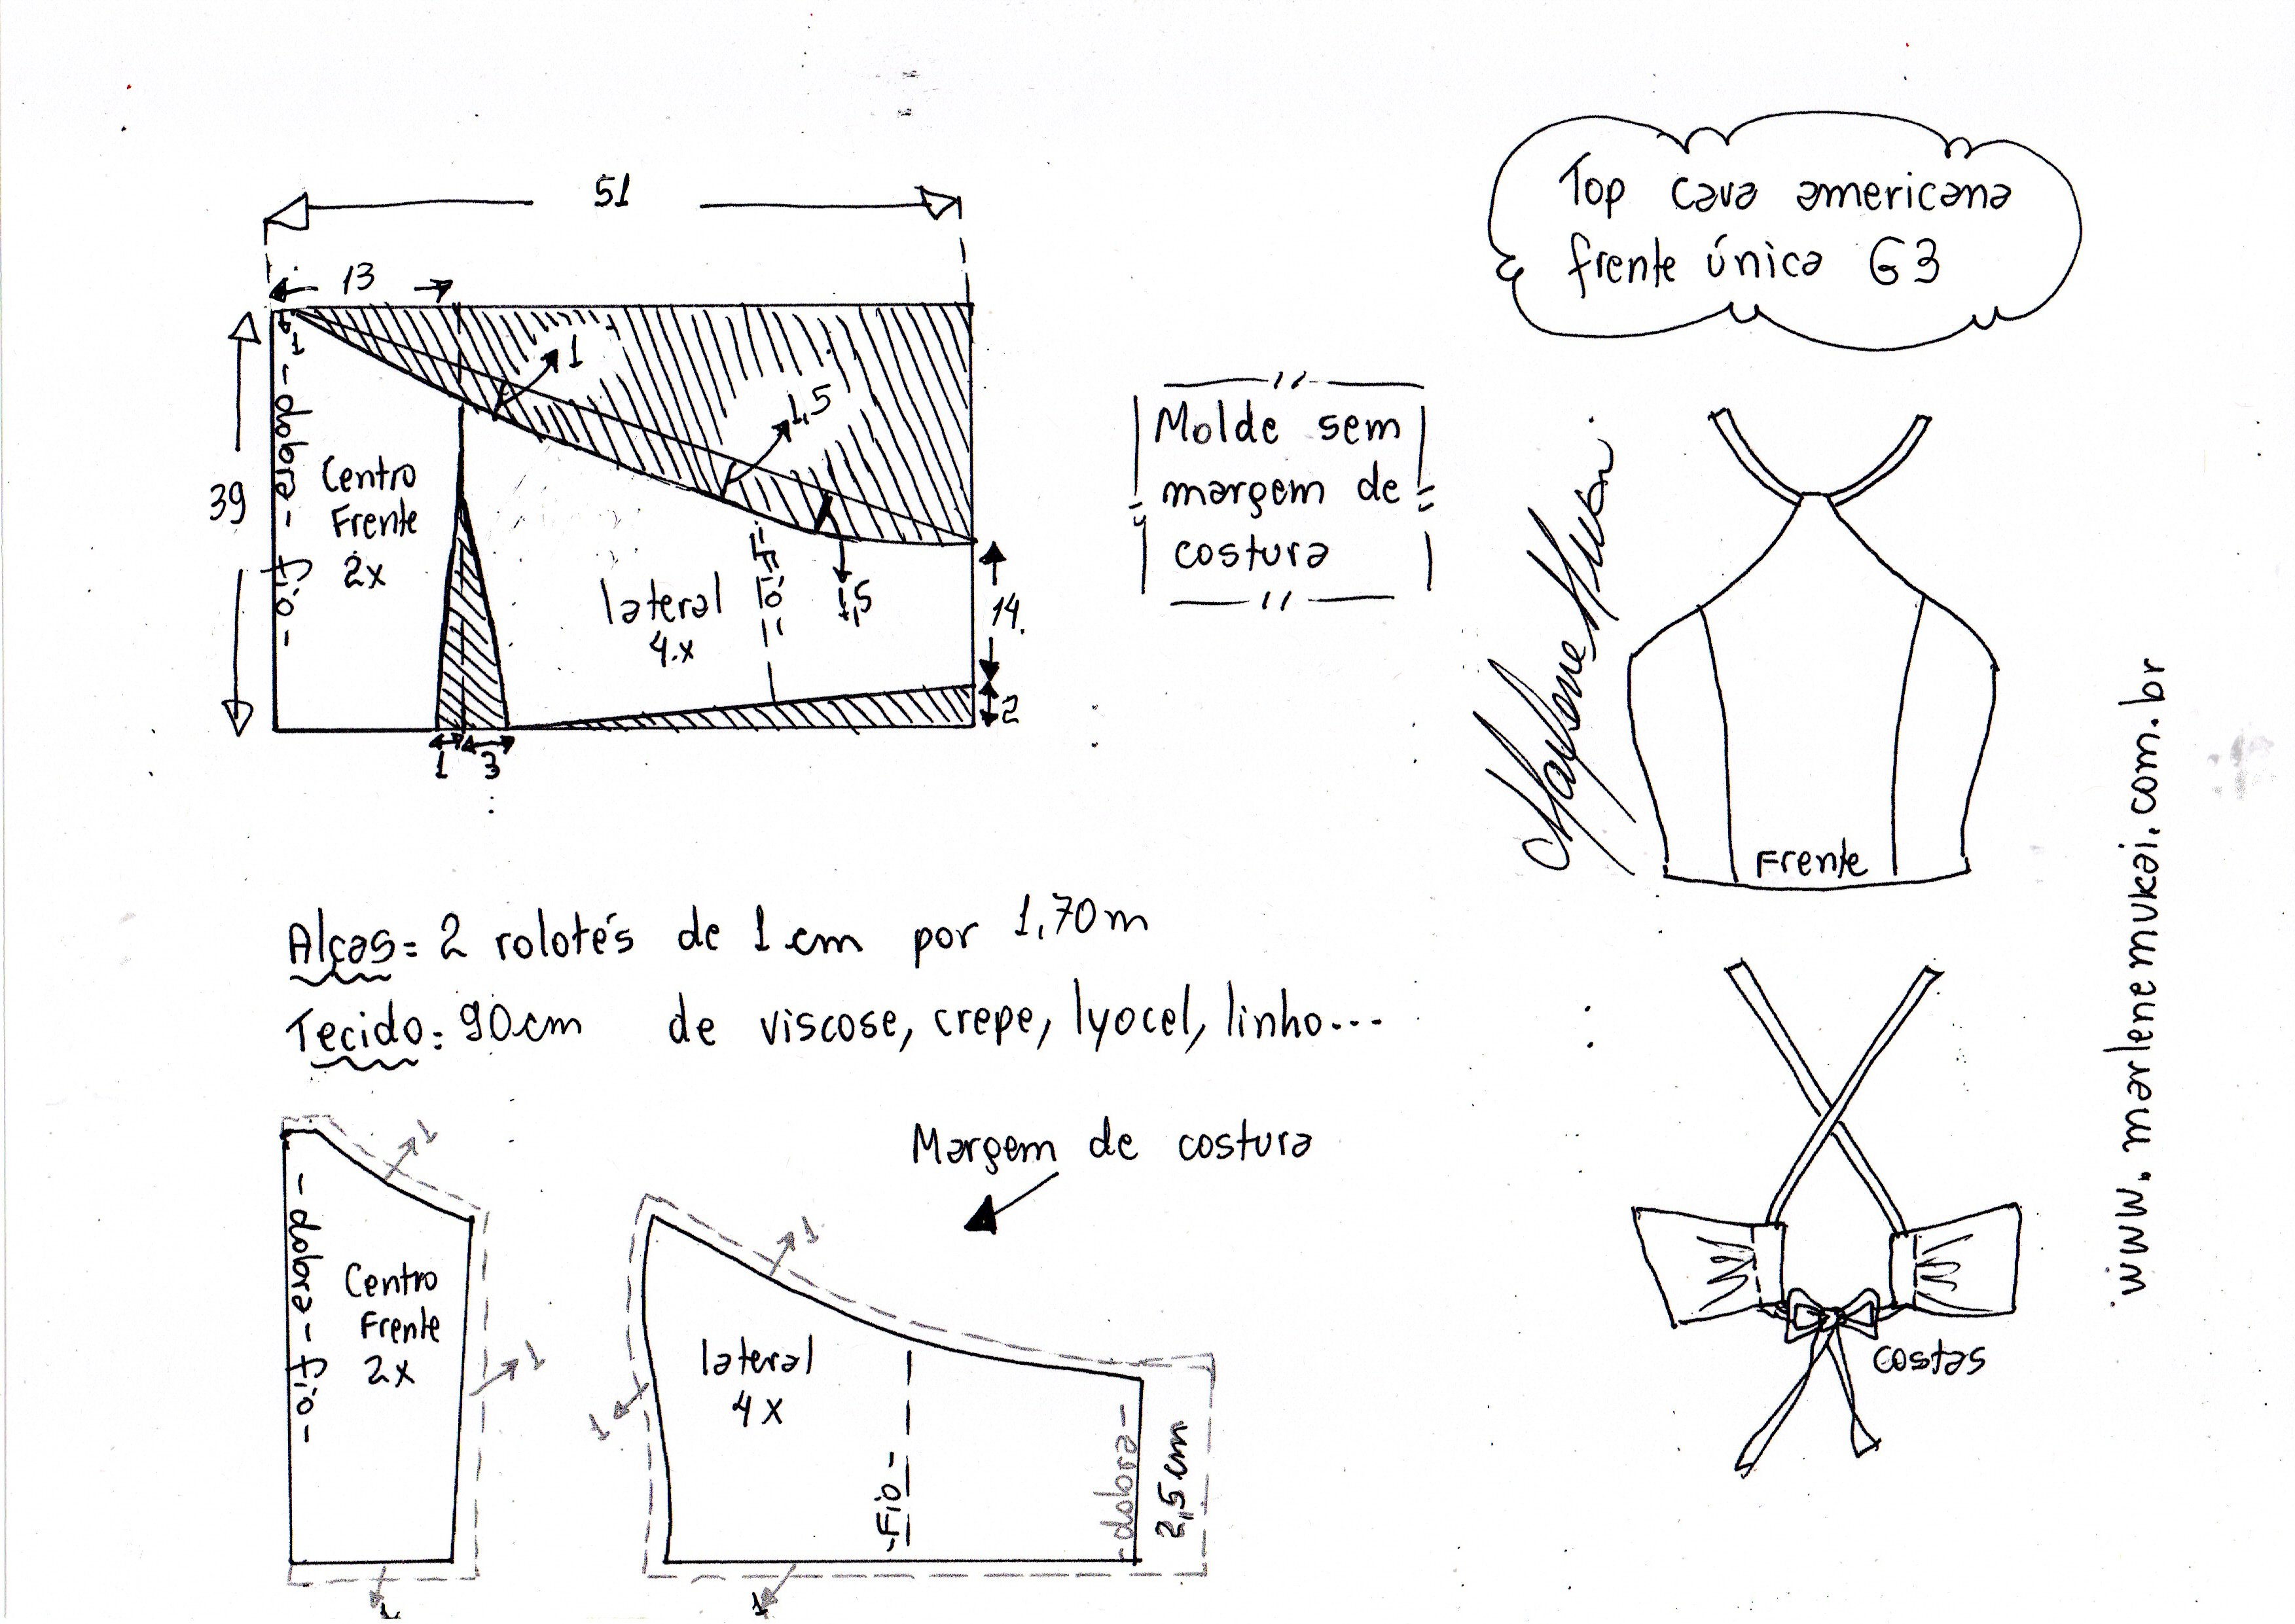 Top cava americana
frente única G3
51
13
1
- dobra - fio -
39
Centro
Frente
2x
1
1,5
1,5
fio
lateral
4x
14
2
1
3
Molde sem
margem de
costura
Frente
www.marlenemukai.com.br
Alças = 2 rolotés de 1 cm por 1,70m
Tecido: 90cm de viscose, crepe, lyocel, linho...
Margem de costura
1
- dobra - fio -
Centro
Frente
2x
1
1
1
lateral
4x
1
- Fio -
- dobra -
2,5cm
1
costas